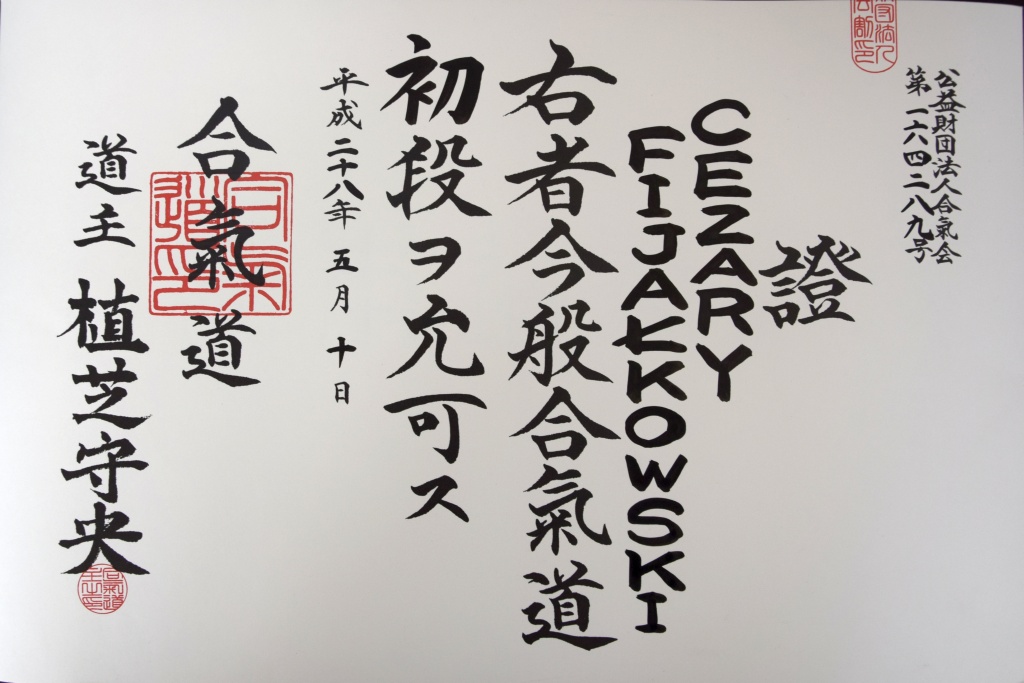 公益財団法人合氣会
第一六四二八九号
證
CEZARY
FIJAŁKOWSKI
右者今般合氣道
初段ヲ允可ス
平成二十八年 五月 十日
合氣道
道主 植芝守央